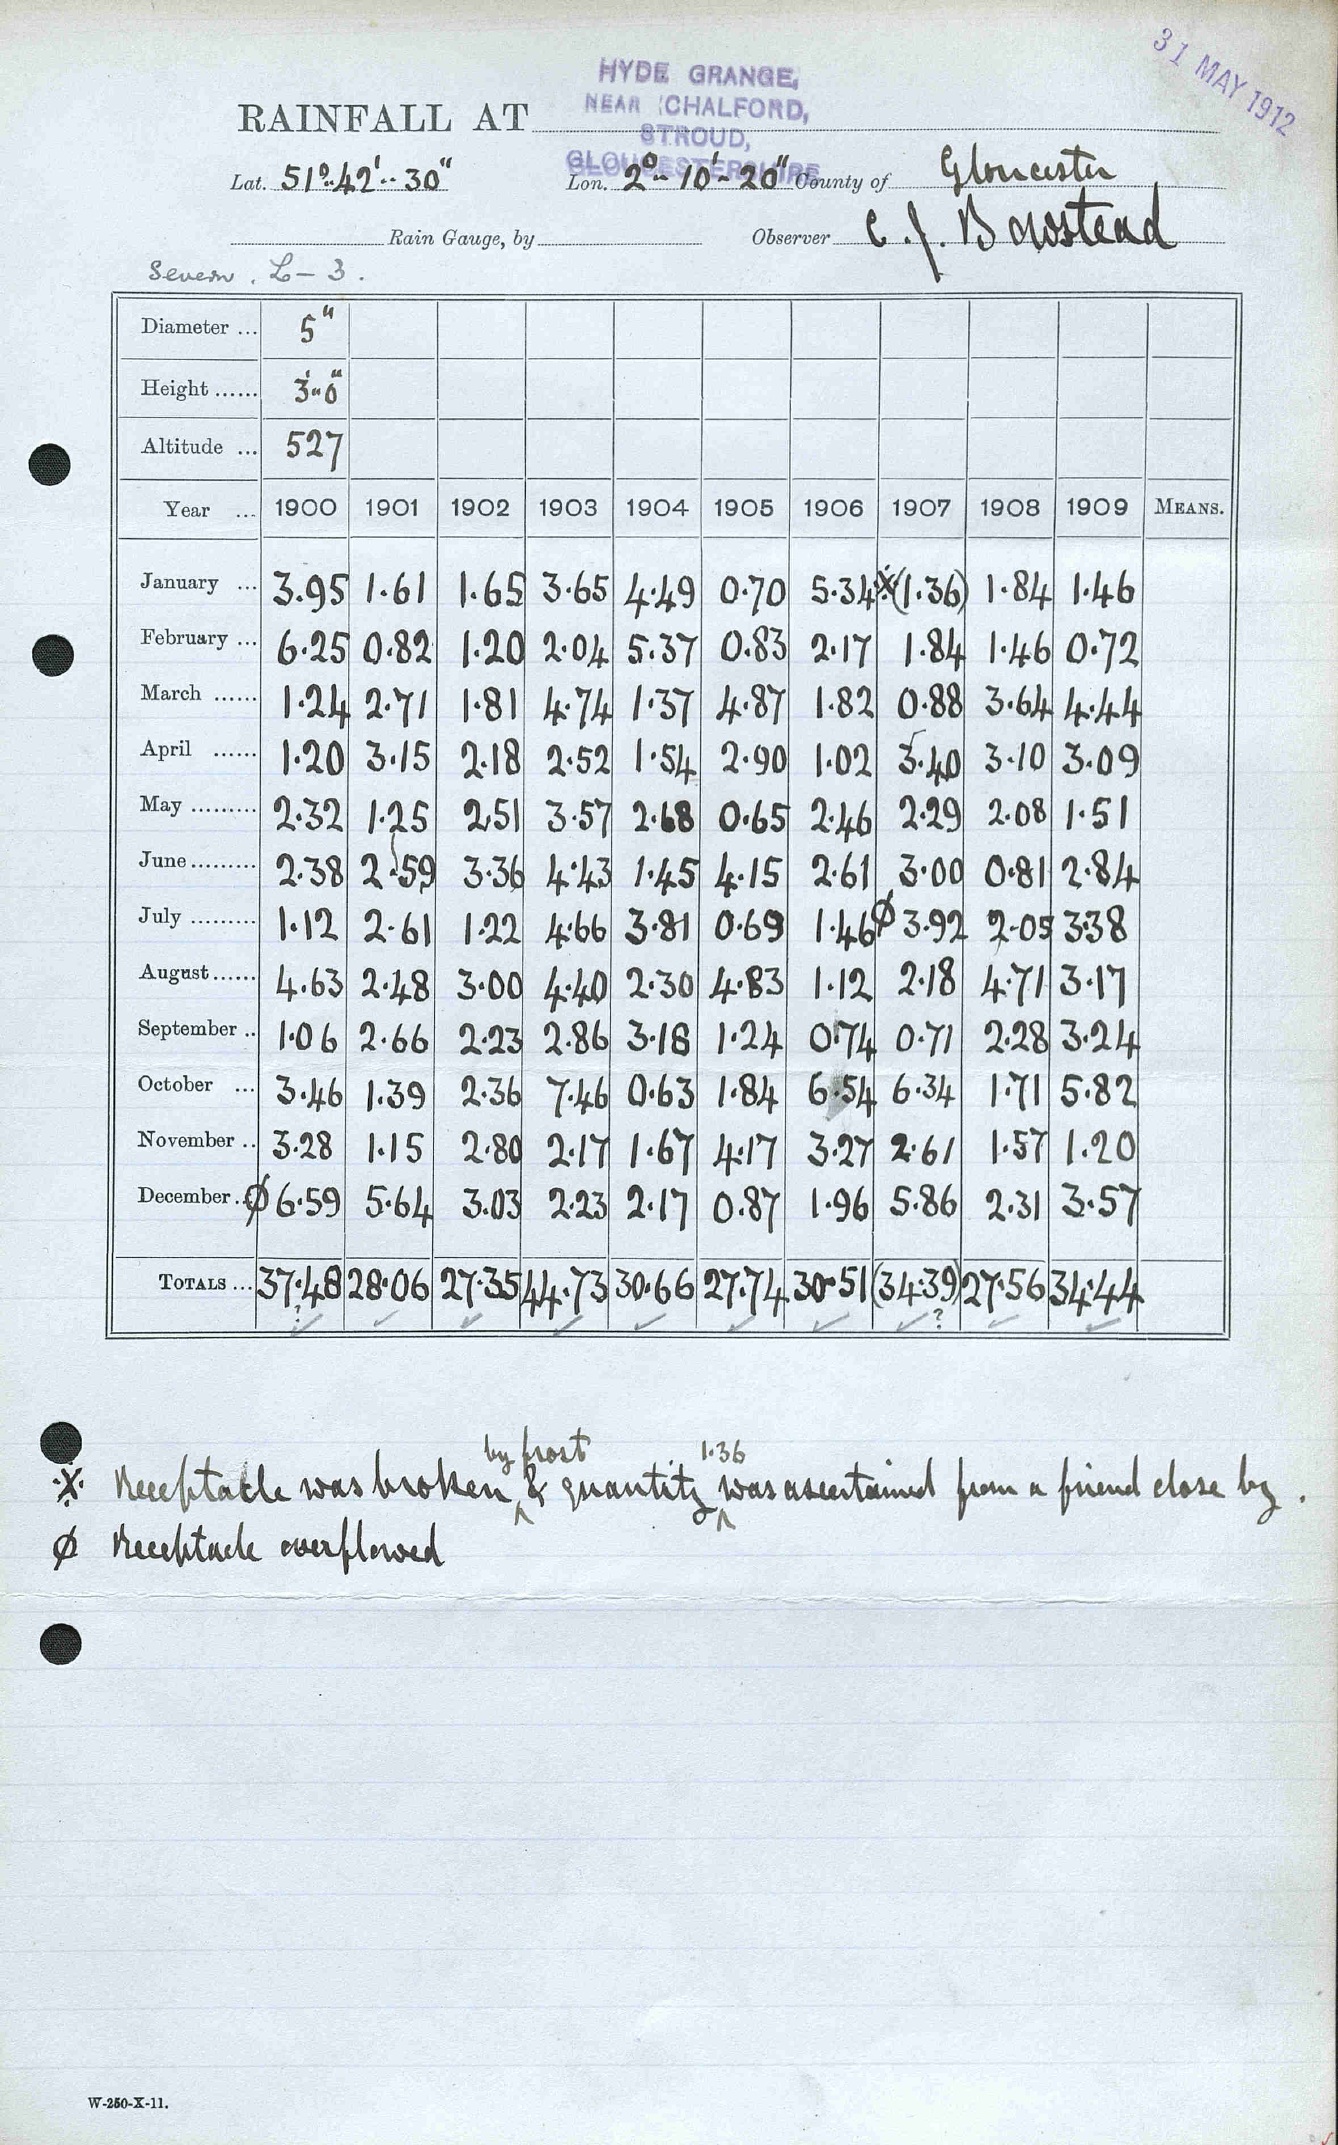 31 MAY 1912
HYDE GRANGE,
NEAR CHALFORD,
STROUD,
GLOUCESTERSHIRE
RAINFALL AT
Lat. 51°..42'..30" Lon. 2°..10'..20" County of Gloucester
Rain Gauge, by Observer C. J. Bowstead
Severn. L-3.
Diameter ... 5"
Height ...... 3'..0"
Altitude ... 527
Year ... 1900 1901 1902 1903 1904 1905 1906 1907 1908 1909 MEANS.
January ... 3.95 1.61 1.65 3.65 4.49 0.70 5.34 ※(1.36) 1.84 1.46
February ... 6.25 0.82 1.20 2.04 5.37 0.83 2.17 1.84 1.46 0.72
March ...... 1.24 2.71 1.81 4.74 1.37 4.87 1.82 0.88 3.64 4.44
April ...... 1.20 3.15 2.18 2.52 1.54 2.90 1.02 3.40 3.10 3.09
May ......... 2.32 1.25 2.51 3.57 2.68 0.65 2.46 2.29 2.08 1.51
June ......... 2.38 2.59 3.36 4.43 1.45 4.15 2.61 3.00 0.81 2.84
July ......... 1.12 2.61 1.22 4.66 3.81 0.69 1.46 ø 3.92 2.05 3.38
August ...... 4.63 2.48 3.00 4.40 2.30 4.83 1.12 2.18 4.71 3.17
September .. 1.06 2.66 2.23 2.86 3.18 1.24 0.74 0.71 2.28 3.24
October ... 3.46 1.39 2.36 7.46 0.63 1.84 6.54 6.34 1.71 5.82
November .. 3.28 1.15 2.80 2.17 1.67 4.17 3.27 2.61 1.57 1.20
December .. ø 6.59 5.64 3.03 2.23 2.17 0.87 1.96 5.86 2.31 3.57
TOTALS ... 37.48 28.06 27.35 44.73 30.66 27.74 30.51 (34.39) 27.56 34.44
? ?
※ Receptacle was broken by frost & quantity 1.36 was ascertained from a friend close by.
ø Receptacle overflowed
W-250-X-11.